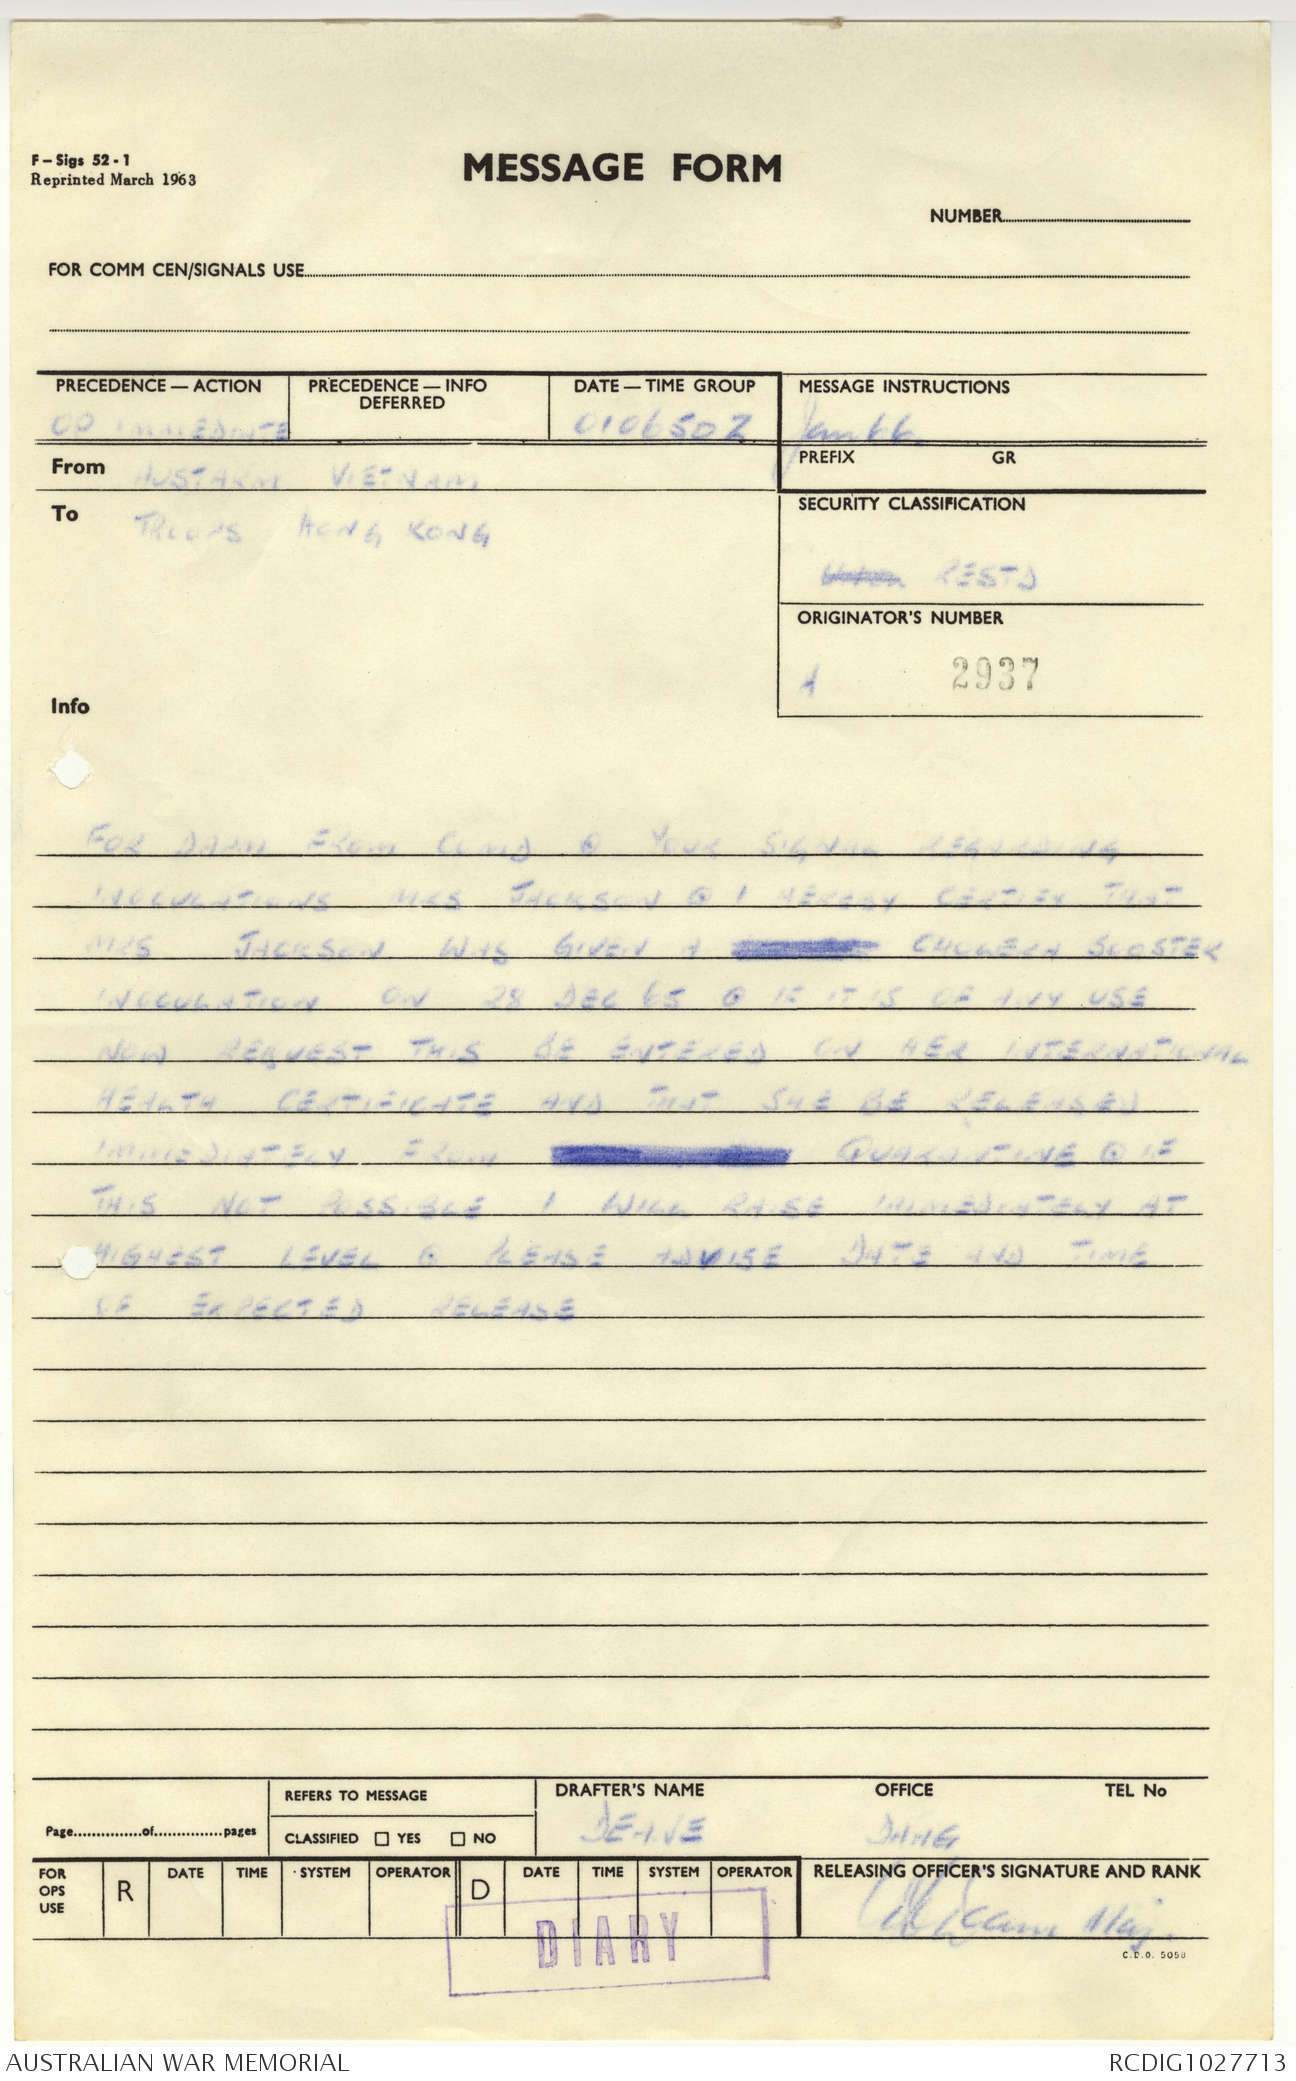 F-Sigs 52-1
Reprinted March 1963
MESSAGE FORM
NUMBER
FOR COMM CEN/SIGNALS USE
PRECEDENCE — ACTION
PRECEDENCE — INFO
DEFERRED
DATE — TIME GROUP
MESSAGE INSTRUCTIONS
OP IMMEDIATE
010650Z
Jan 66
PREFIX GR
From AUSTARM VIETNAM
To HONG KONG
SECURITY CLASSIFICATION
RESTD
ORIGINATOR'S NUMBER
A 2937
Info
FOR FROM COMD @ YOUR SIGNAL REGARDING
INOCULATIONS MRS JACKSON @ I HEREBY CERTIFY THAT
MRS JACKSON WAS GIVEN A CHOLERA BOOSTER
INOCULATION ON 28 DEC 65 @ IF IT IS OF ANY USE
NOW REQUEST THIS BE ENTERED ON HER INTERNATIONAL
HEALTH CERTIFICATE AND THAT SHE BE RELEASED
IMMEDIATELY FROM QUARANTINE @ IF
THIS NOT POSSIBLE I WILL RAISE IMMEDIATELY AT
HIGHEST LEVEL @ PLEASE ADVISE DATE AND TIME
OF EXPECTED RELEASE
Page of pages
REFERS TO MESSAGE
CLASSIFIED YES NO
DRAFTER'S NAME OFFICE TEL No
DAAG
FOR
OPS
USE
R DATE TIME SYSTEM OPERATOR D DATE TIME SYSTEM OPERATOR
RELEASING OFFICER'S SIGNATURE AND RANK
Maj.
DIARY
C.D.O. 5058
AUSTRALIAN WAR MEMORIAL RCDIG1027713